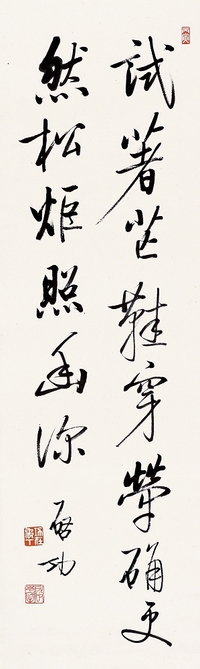 试著芒鞋穿荦确更
然松炬照幽深
启功